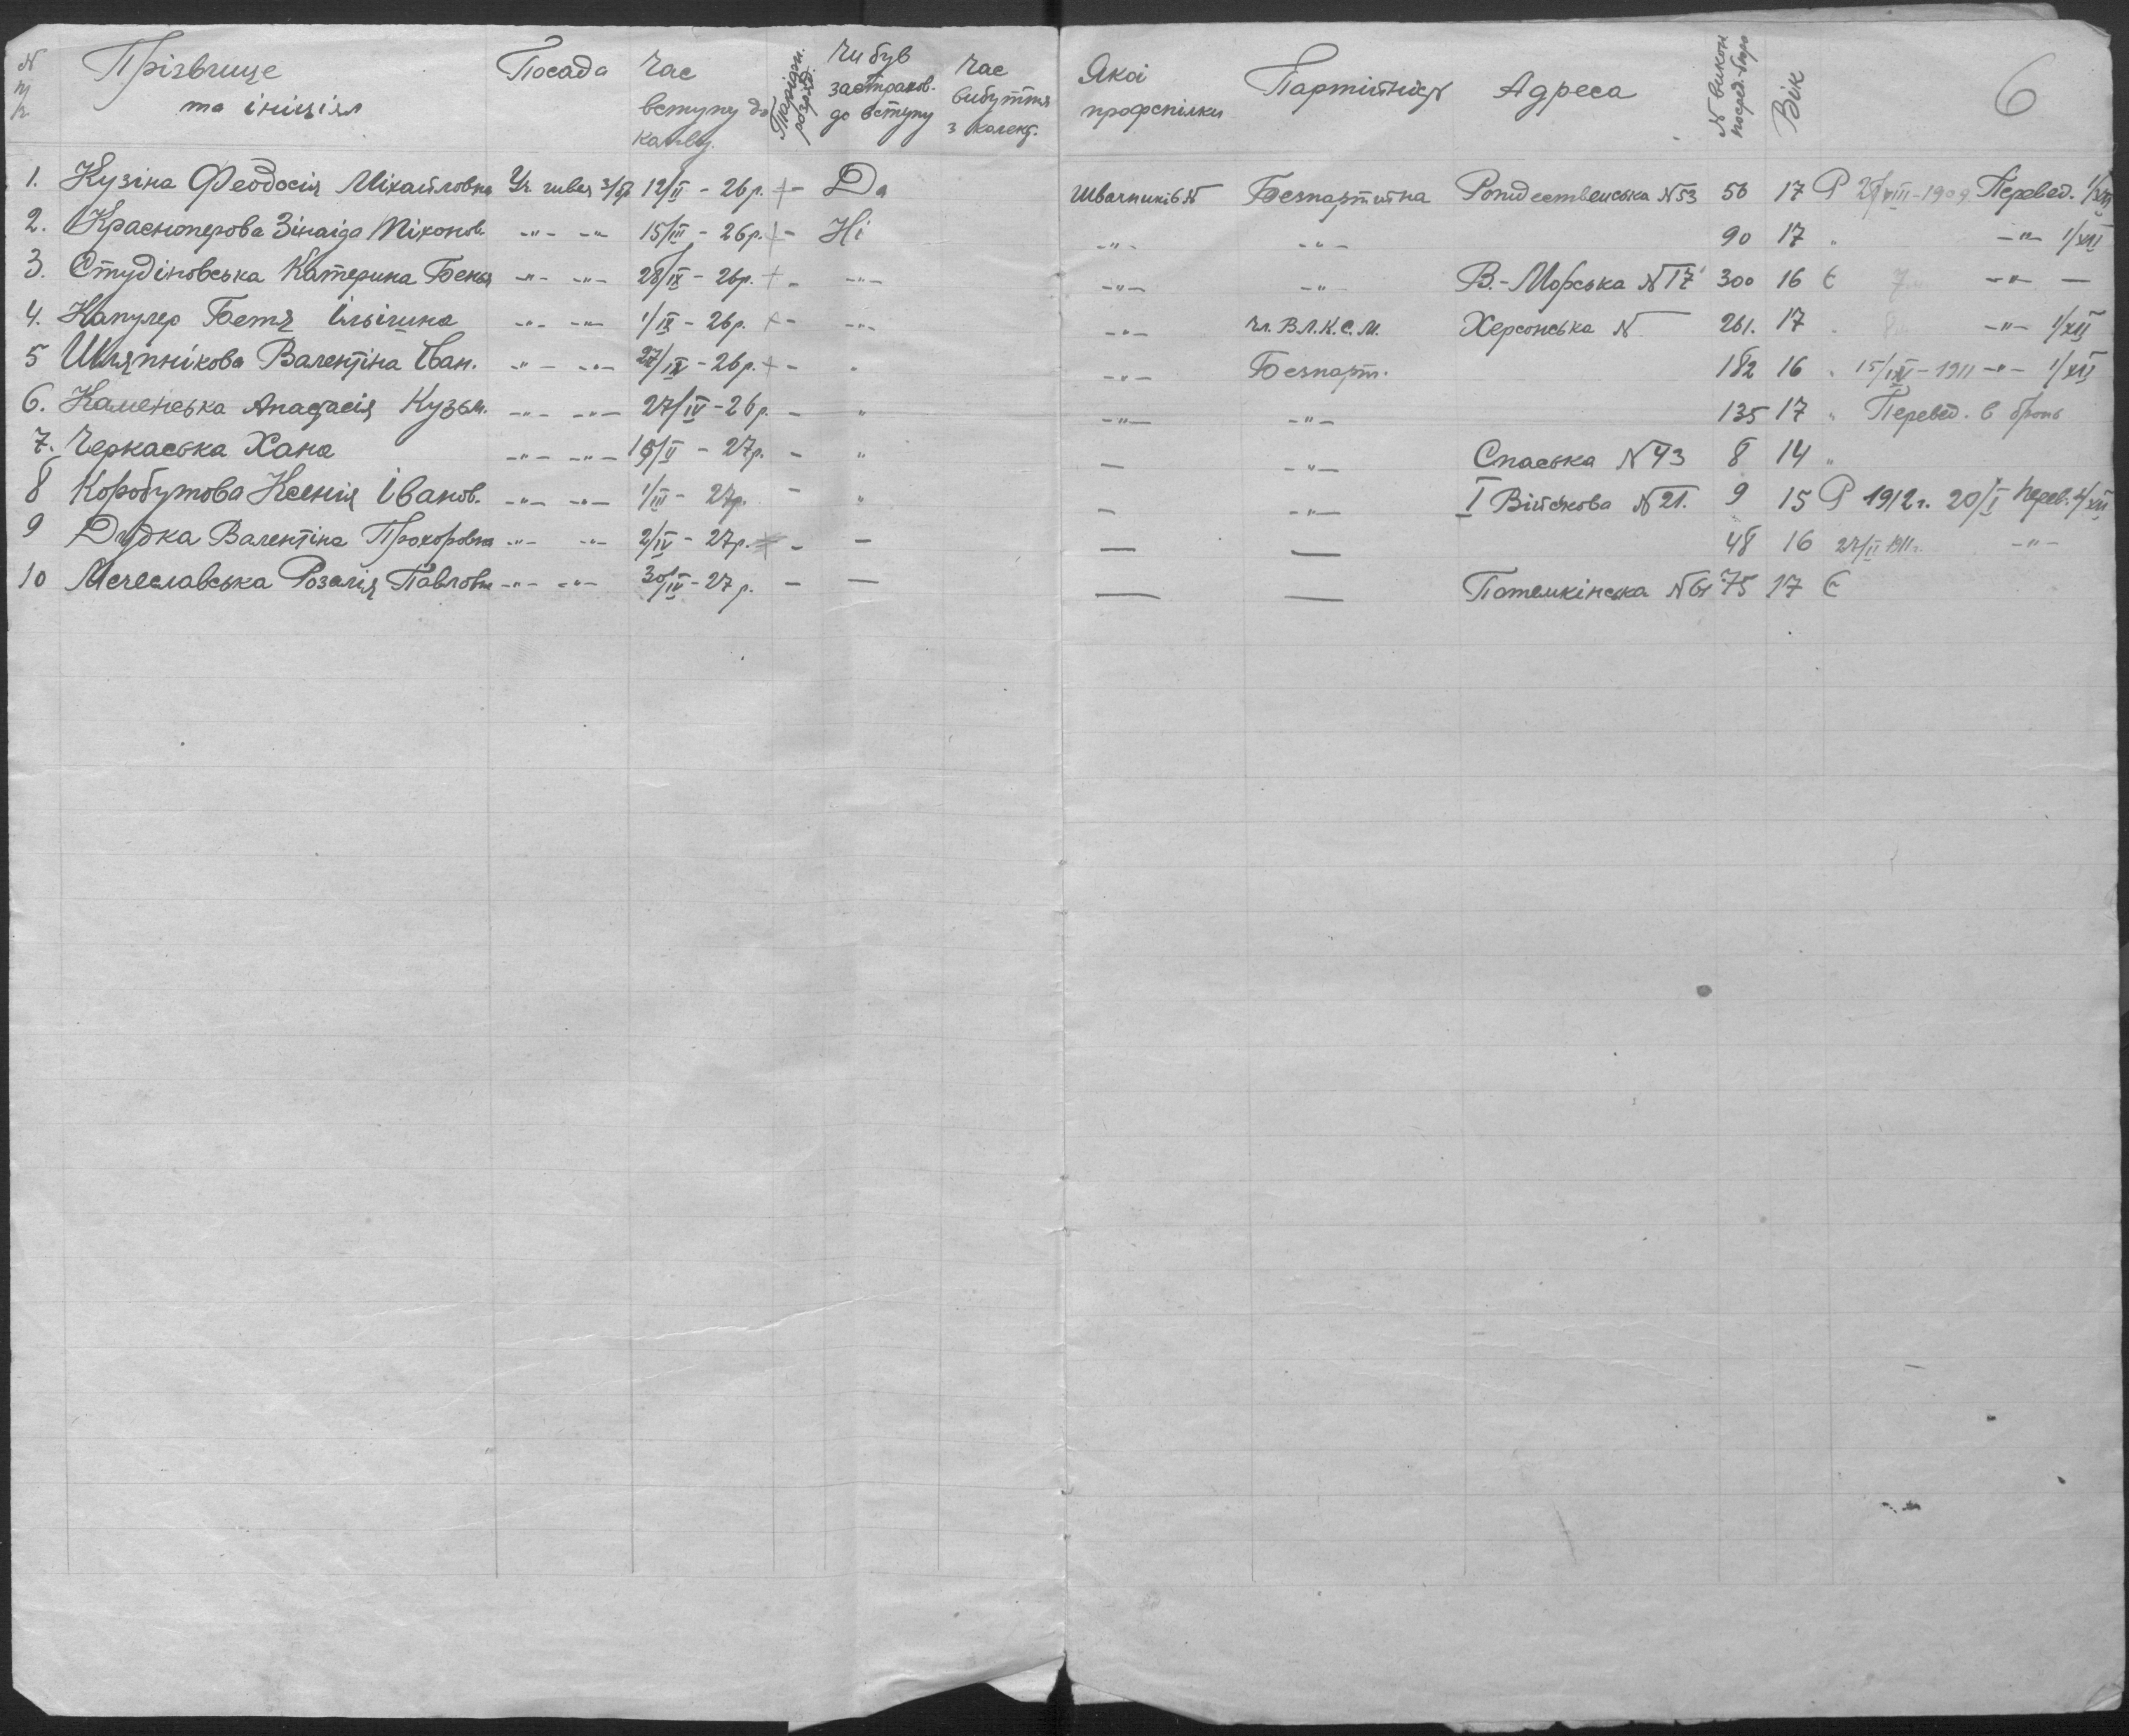 N п/п Прізвище та ініціял Посада Час вступу до Тарідн. розряд. Чи був застрахов. до вступу Час вибуття з колект. Якоі профспілки Партійність Адреса N Вік 6
1. Кузіна Феодосія Міхайловна Уч. швея 12/II - 26р. + - Да Швачників N Безпартийна Рождественська N 53 56 17 Р VIII - 1909 Перевед. 1/XII
2. Красноперова Зінаіда Ніконов. -"- -"- 15/III - 26р. + - Ні -"- -"- 90 17 " -"- 1/XII
3. Студіновська Катерина -"- -"- 28/IX - 26р. + - -"- -"- -"- В.-Морська N 17 300 16 Є 7 -"- —
4. Капулер Бетя Ільінина -"- -"- 1/IX - 26р. + - -"- -"- Чл. В.Л.К.С.М. Херсонська N 261. 17 " -"- 1/XII
5 Шляпнікова Валентіна Іван. -"- -"- 27/IX - 26р. + - " -"- Безпарт. 182 16 " 15/IX - 1911 -"- 1/XII
6. Каменська Анастасія Кузьм. -"- -"- 27/IV - 26р. - " -"- -"- 135 17 " Перевед. в бронь
7. Черкаська Хана -"- -"- /II - 27р. - " — -"- Спаська N 43 8 14 "
8 Коробутова Ксенія Іванов. -"- -"- 1/III - 27р. - " — -"- I Війскова N 21. 9 15 Р 1912 г. 20/I перев. 1/XII
9 Дудка Валентіна Прохоровна -"- -"- 2/IV - 27р. + - — — — 48 16 27/II 1911 г. -"-
10 Мечеславська Розалія Павловн -"- -"- 30/IV - 27р. - — — — Потемкінська N 61 75 17 Є